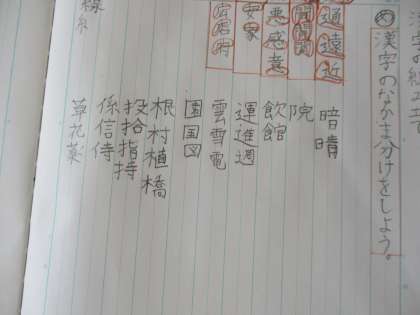 漢字のなかま分けをしよう。
道遠近
開聞間
悪感意
安家
広店府
暗晴
院
飲館
運進週
雲雪電
園国図
根村植橋
投拾指持
係信侍
草花薬
線糸